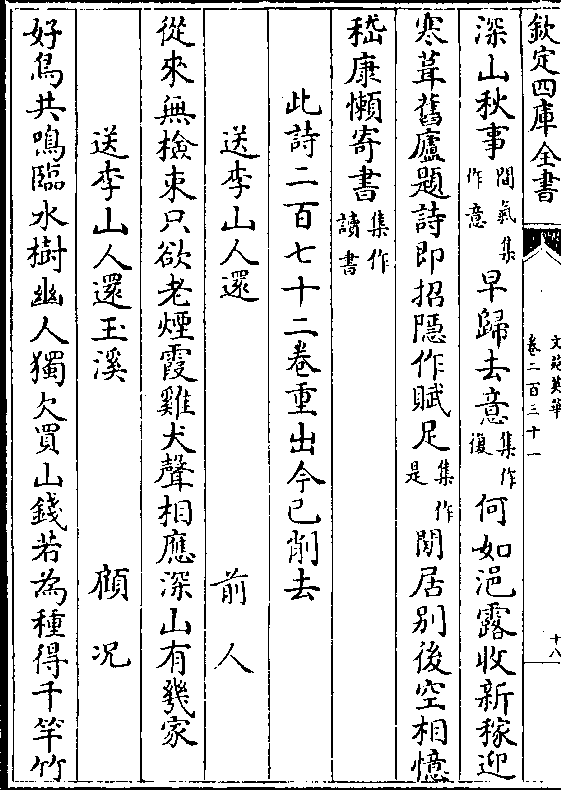 欽定四庫全書
文苑英華
卷二百三十一
十八
深山秋事間氣集作意早歸去意集作復何如浥露收新稼迎
寒葺舊廬題詩即招隱作賦足集作是閒居别後空相憶
嵇康懶寄書集作讀書
此詩二百七十二卷重出今已削去
送李山人還 前人
從來無檢束只欲老煙霞雞犬聲相應深山有幾家
送李山人還玉溪 顧况
好鳥共鳴臨水樹幽人獨欠買山錢若為種得千竿竹